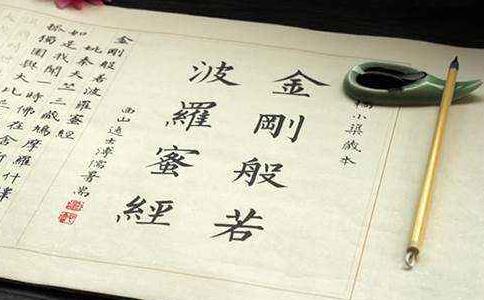 小渠藏本
金剛般若
波羅蜜經
西山逸士溥儒署耑
金剛般若波羅蜜經
姚秦天竺三藏鳩摩羅什
如是我聞一時佛在舍
孤獨園與大比